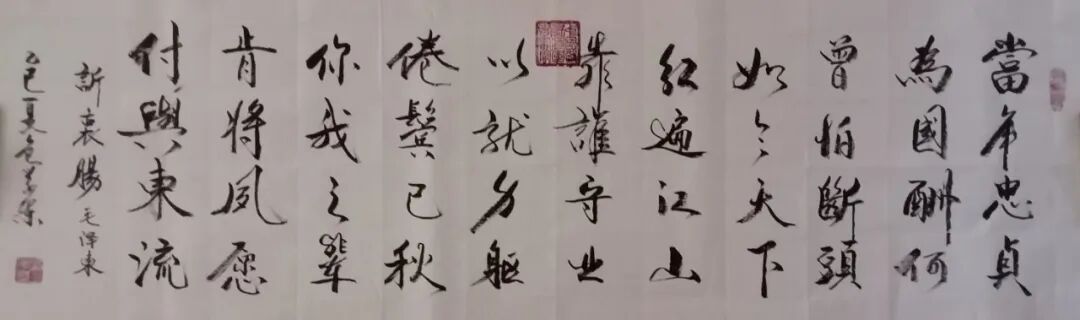 當年忠貞
為國酬何
曾怕斷頭
如今天下
紅遍江山
靠誰守业
以就身軀
倦鬢已秋
你我之輩
肯将夙愿
付與東流
訴衷腸 毛泽東
乙巳夏